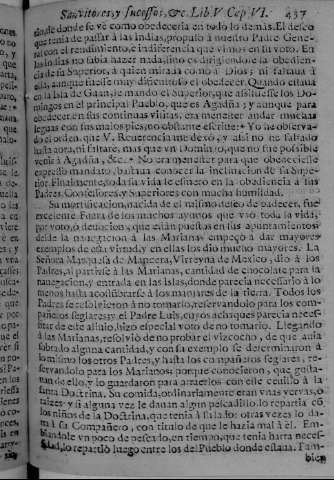 Sanvitores, y sucessos, &c. Lib. V Cap. VI. 437
sion, se donde se vè como obedeceria en todo lo demàs. El deseo
que tenia de passar à las Indias, propuso à nuestro Padre Gene-
ral con el rendimiento, e indiferencia que vimos en su voto. En
las Indias no sabia hazer nada, sino es dirigiendole la obedien-
cia de su Superior, à quien miraba como à Dios; ni faltaba à
ella, aunque fuesse muy dificultoso el obedecer. Quando estaua
en la Isla de Guan, le mandò el Superior, que assistiesse los Do-
mingos en el principal Pueblo, que es Agadña; y aunque para
obedecer, en sus continuas visitas, era menester andar muchas
leguas con sus malos pies, no obstante escriue: Yo he observa-
do el orden, que V. Reuerencia me dexò, y assi no he faltado
hasta aora, ni faltarè, mas que vn Domingo, que no fue possible
venir à Agadña, &c. No era menester para que obedeciesse
expresso mandato, bastaua conocer la inclinacion de su Supe-
rior. Finalmente, toda su vida se esmerò en la obediencia à sus
Padres, Confessores, y Superiores con mucha humildad.
Su mortificacion, nacida de el mismo deseo de padecer, fue
excelente. Fuera de los muchos ayunos que vsò toda la vida,
por voto, ò deuocion, que estàn puestos en sus apuntamientos:
desde la nauegacion à las Marianas empeçò à dar mayores
exemplos de esta virtud, y en ellas los diò mucho mayores. La
Señora Marquesa de Mancera, Virreyna de Mexico, diò à los
Padres, al partirse à las Marianas, cantidad de chocolate para la
nauegacion, y entrada en las Islas, donde parecia necessario à lo
menos hasta acostumbrarse à los manjares de la tierra. Todos los
Padres se resoluieron à no tomarlo, reservandolo para los com-
pañeros seglares, y el Padre Luis, cuyos achaques parecia neces-
sitar de este aliuio, hizo especial voto de no tomarlo. Llegando
à las Marianas, resolviò de no probar el vizcocho, de que auia
sobrado alguna cantidad, y con su exemplo se determinaron à
lo mismo los otros Padres, y hasta los compañeros seglares, re-
servandolo para los Marianos, porque conocieron, que gusta-
uan de ello, y lo guardaron para atraerlos con este ceuillo à la
santa Doctrina. Su comida, ordinariamente eran vnas yervas, ò
raizes: y si alguna vez le dauan algun pescadillo, lo repartia cõ
los niños de la Doctrina, que tenia à su lado: otras vezes lo da-
ua à su Compañero, con titulo de que le hazia mal à èl. Em-
biandole vn poco de pescado, en tiempo, que tenia harta neces-
sidad, lo repartiò luego entre los del Pueblo donde estaua. Tam-
bien